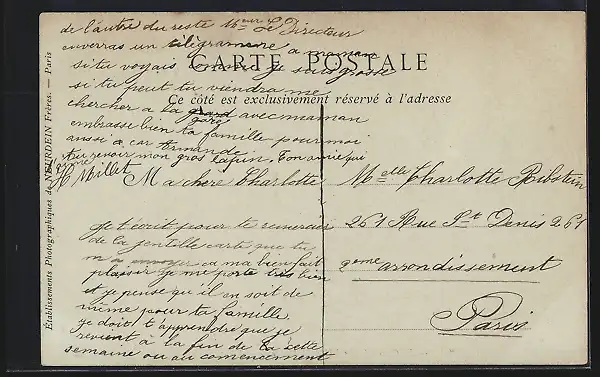 de l'autre du reste Mr Le Directeur
enverras un télégramme a maman
si tu voyais comme je suis grosse
si tu peut tu viendra me
chercher a la gare avec maman
embrasse bien ta famille pour moi
aussi a car Armande
Au revoir mon gros lapin. Ton amie qui
t'aime
H Millet
CARTE POSTALE
Ce côté est exclusivement réservé à l'adresse
Établissements Photographiques de NEURDEIN Frères. — Paris
Ma chère Charlotte
Je t'écrit pour te remercier
de la gentille carte que tu
m'a envoyer ça ma bien fait
plaisir je me porte très bien
et je pense qu'il en soit de
même pour ta famille.
Je doit t'apprendre que je
revient à la fin de la cette
semaine ou au commencement
Melle Charlotte Ribstein
261 Rue St Denis 261
2eme arrondissement
Paris